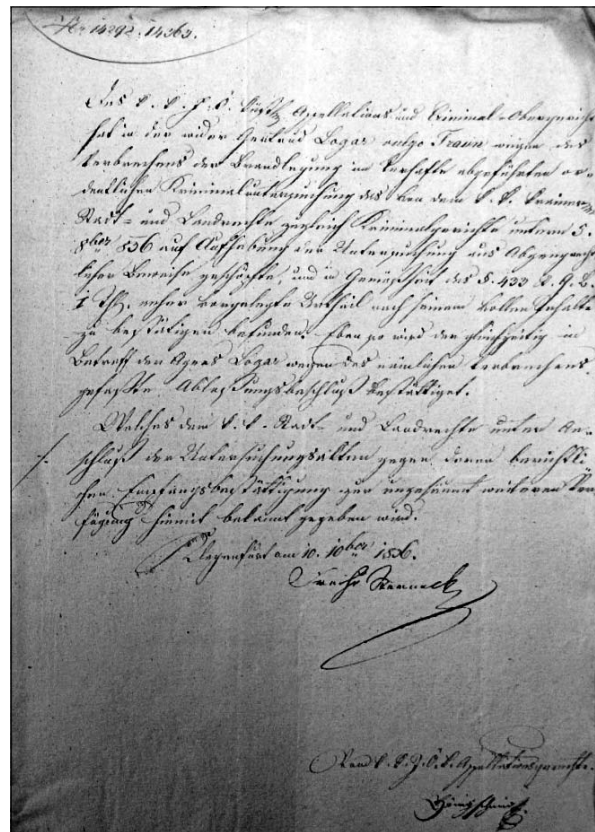 Nr 14292. 14363.
Das k. k. J. Ö. Küstl. Appellations und Criminal-Obergericht
hat in der wider Gertraud Logar vulgo Traun wegen des
Verbrechens der Brandlegung im Verhafte abgeführten or-
dentlichen Kriminaluntersuchung das von dem k. k.
Stadt- und Landrechte zugleich Kriminalgerichte unterm 5.
8ber 836 auf Aufhebung der Untersuchung aus Abgang recht-
licher Beweise geschöpfte, und in Gemäßheit des §. 433 St. G. B.
1 Thl. anher vorgelegte Urtheil nach seinem vollen Inhalte
zu bestätigen befunden. Eben so wird der gleichzeitig in
Betreff der Agnes Logar wegen des nämlichen Verbrechens
gefaßte Ablassungsbeschluß bestättiget.
Welches dem k. k. Stadt- und Landrechte unter An-
schluß der Untersuchungsakten gegen deren
Empfangsbestättigung zur ungesäumt weiteren Ver-
fügung hiemit bekannt gegeben wird.
Klagenfurt am 10. 10ber 1836.
Freihr Sterneck
Vom k. k. J. Ö. K. Appellationsgerichte.